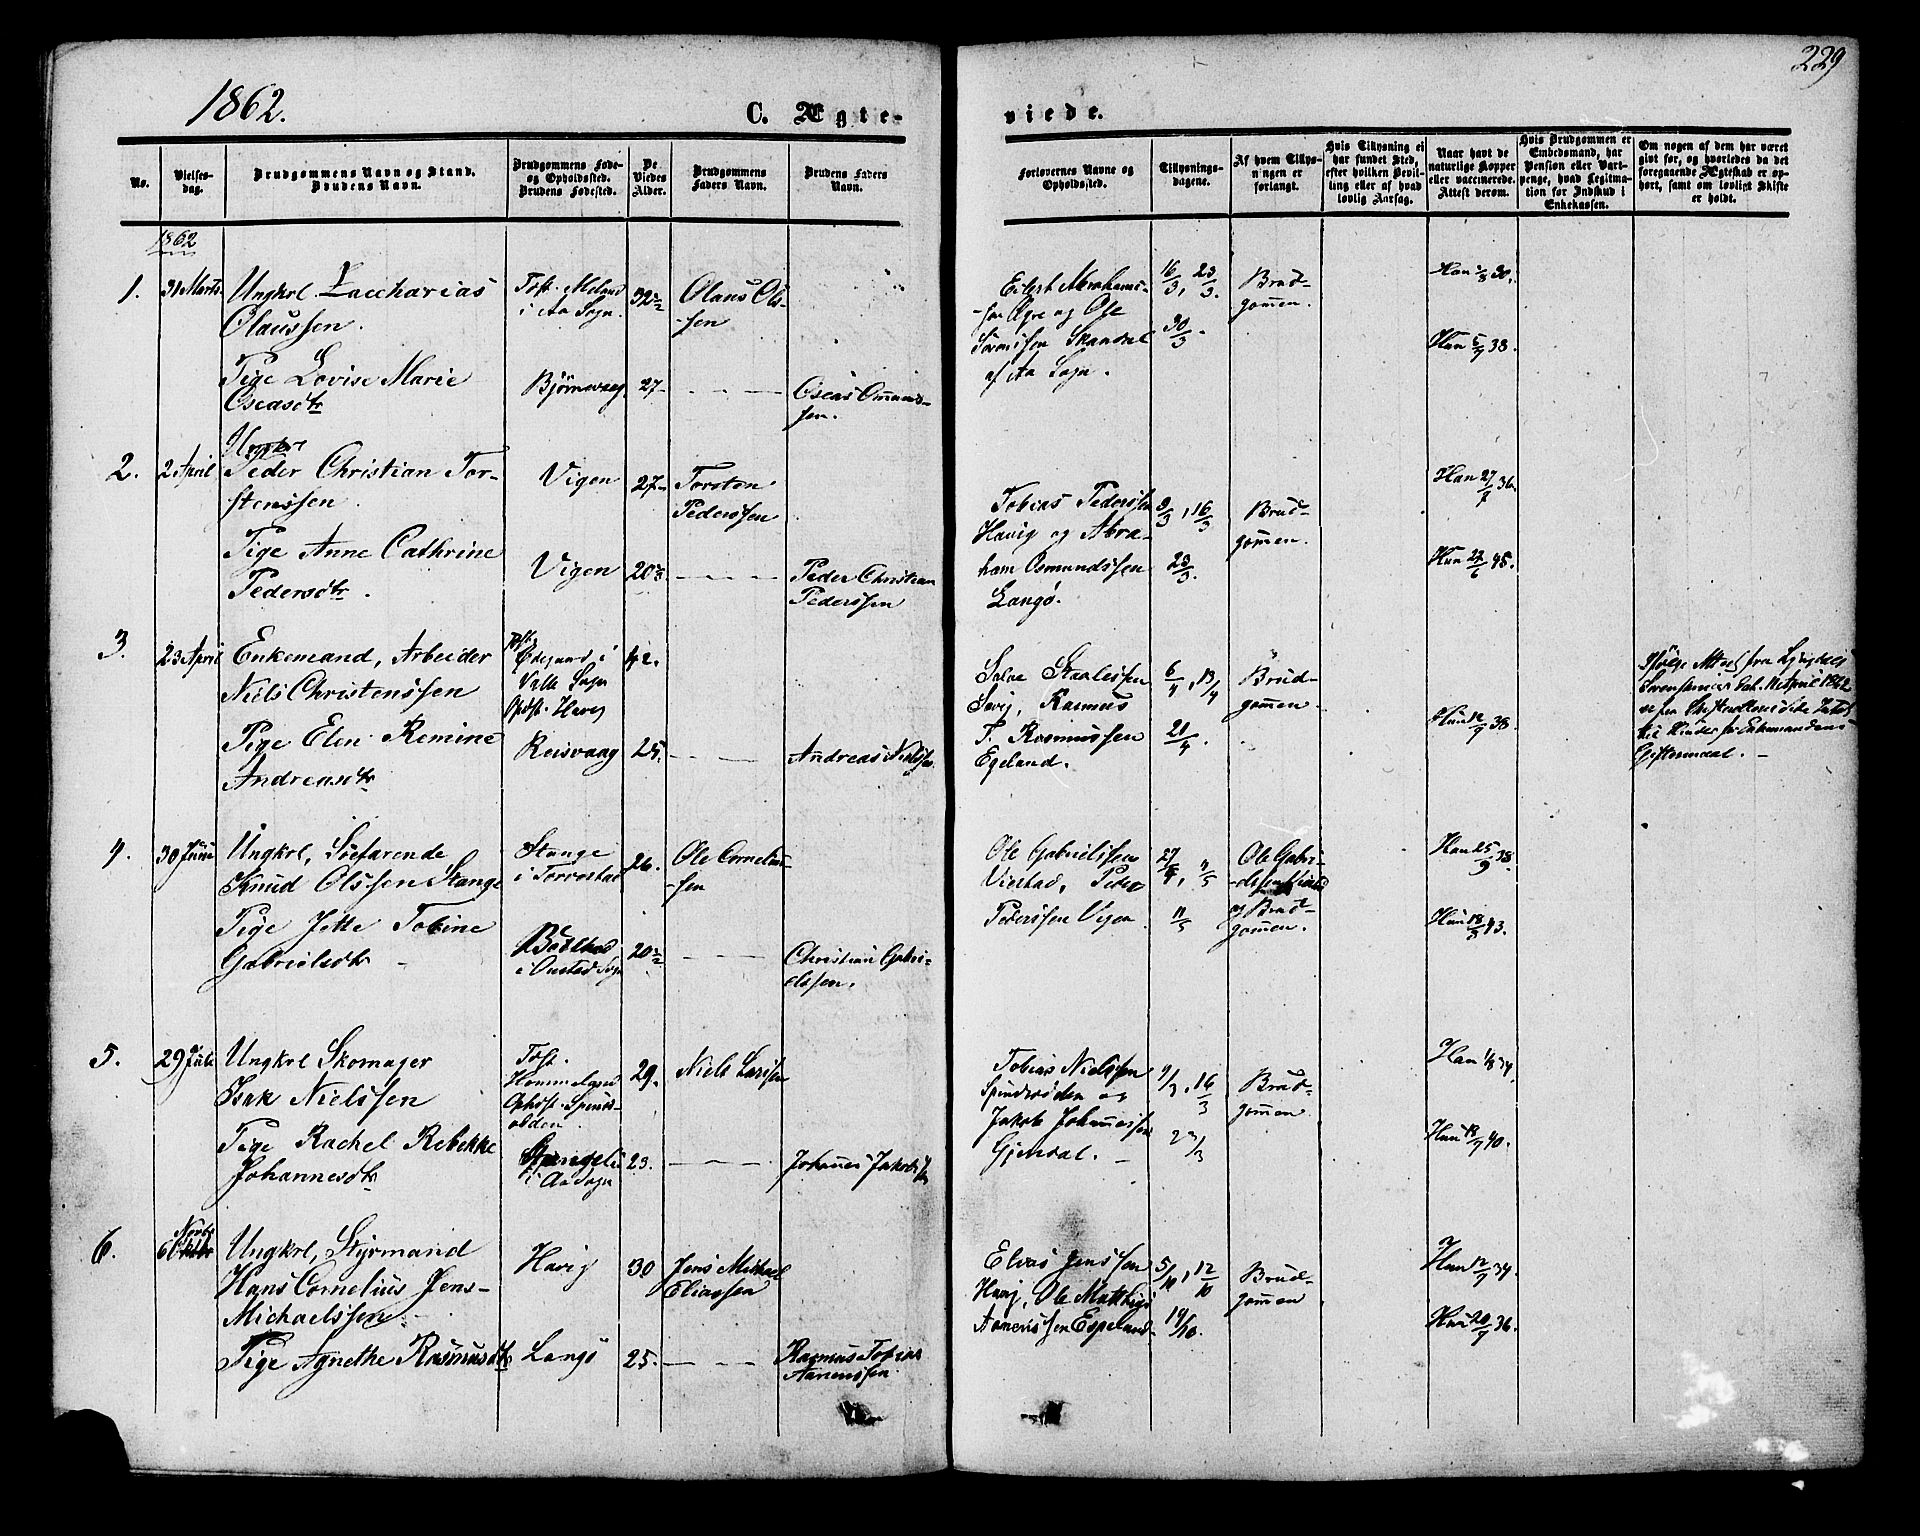 1862.
C. Ægte-
viede.
229
No.
Vielses-
dag.
Brudgommens Navn og Stand.
Brudens Navn.
Brudgommens Føde-
og Opholdssted.
Brudens Fødested.
De
Viedes
Alder.
Brudgommens
Faders Navn.
Brudens Faders
Navn.
Forlovernes Navne og
Opholdssted.
Tillysnings-
dagene.
Af hvem Tillys-
ningen er
forlangt.
Hvis Tillysning ei
har fundet Sted,
efter hvilken Bevil-
ling eller af hvad
lovlig Aarsag.
Naar havt de
naturlige Kopper
eller vaccinerede.
Attest derom.
Hvis Brudgommen er
Embedsmand, har
Pension eller Vart-
penge, hvad Legitima-
tion for Indskud i
Enkekassen.
Om nogen af dem har været
givt før, og hvorledes da det
foregaaende Ægteskab er op-
hørt, samt om lovligt Skifte
er holdt.
1862
1.
31 Marts.
Ungkrl Zaccharias
Olaussen.
Tige Lovise Marie
Oseasdtr
Føst. Moland
i Aa Sogn.
Bjørnevaag
32 1/2
27
Olaus Ols-
sen
Oseas Omund-
sen.
Eilert Abrahams-
sen Øgre og Ole
Sørenssen Skandal
af Aa Sogn.
16/3, 23/3.
30/3.
Brud-
gommen.
Han 1/8 30.
Hun 5/7 38.
2.
2 April
Ungkrl
Peder Christian Tor-
stenssen.
Pige Anne Cathrine
Pedersdtr.
Vigen
Vigen
27
20
Torsten
Pederssen
Peder Christian
Pederssen
Tobias Pederssen
Havig og Abra-
ham Osmundssen
Langø.
9/3, 16/3
23/3.
Brud-
gommen.
Han 27/7 36.
Hun 22/6 45.
3.
23 April
Enkemand, Arbeider
Niels Christenssen
Pige Elen Remine
Andreasdtr
Føst.
Ødegaard i
Valle Sogn
Ophst. Havig
Reisvaag
42.
25.
Andreas Nielssen
Salve Staalessen
Rasmus
T. Rasmussen
Egeland.
6/4, 13/4
21/4.
Brud-
gommen.
Hun 12/9 38.
Ifølge Attest fra Lyngdals
April 1862
Giftermaal.
4.
30 Juni
Ungkrl, Søefarende
Knud Olssen Stange
Pige Jette Tobine
Gabrielsdtr
Stange
i Torvestad
i Onstad Sogn
26.
20 1/2
Ole Cornelius-
sen
Christian Gabri-
elssen.
Ole Gabrielssen
Viestad, Peder
Pederssen Vigen
27/4, 4/5
11/5
Ole Gabri-
elssen Viestad
og Brud-
gommen.
Han 25/9 38.
Hun 18/8 43.
5.
29 Juli
Ungkrl Skomager
Isak Nielssen
Pige Rachel Rebekke
Johannesdtr
Føst.
Hommeland
Ophst. Spinds-
odden.
i Aa Sogn
29.
23.
Niels Larssen
Johannes Jakobssen
Tobias Nielssen
Spindsodden og
Jakob Johannessen
Gjendal.
9/3, 16/3
23/3
Brud-
gommen
Han 1/8 34.
Hun 18/7 40.
6.
Novbr
6 Oktbr
Ungkrl, Styrmand
Hans Cornelius Jens-
Michaelssen.
Pige Agnethe Rasmusdtr
Havig
Langø
30
25.
Jens Michael
Eliassen
Rasmus Tobias
Aanenssen
Elias Jenssen
Havig, Ole Matthias
Aanenssen Espeland
5/10, 12/10
19/10.
Brud-
gommen
Han 12/9 34.
Hun 20/9 36.